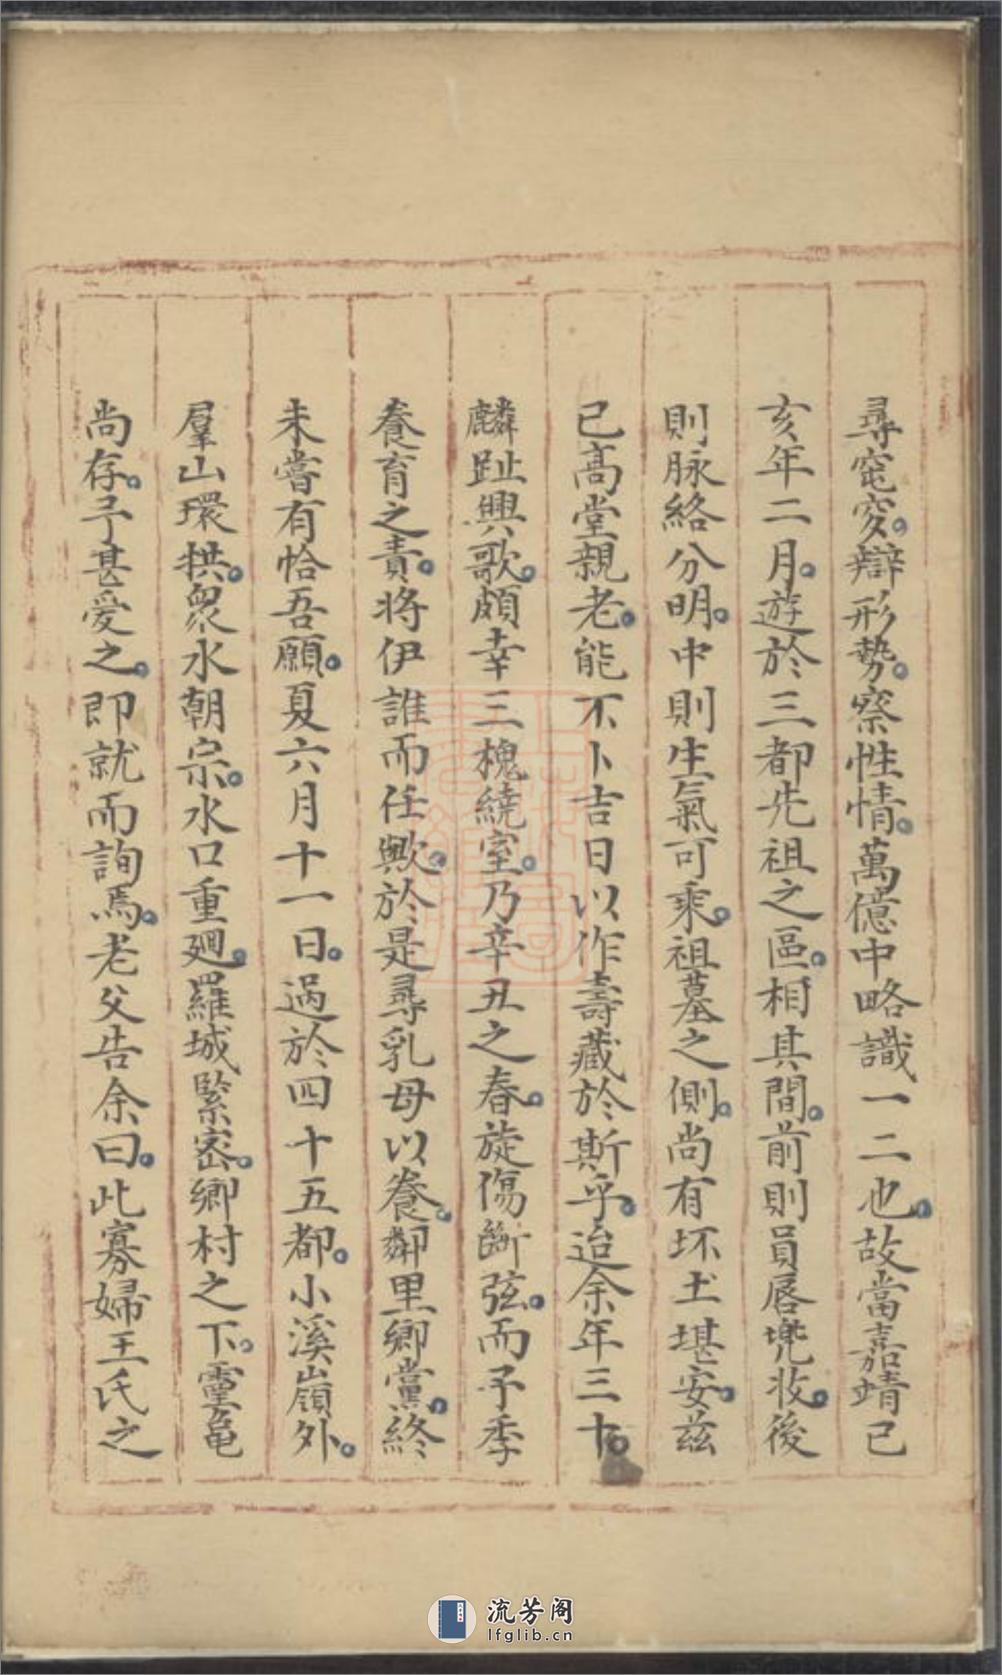 尋窀穸。辯形勢。察性情。萬億中略識一二也。故當嘉靖己
亥年二月。遊於三都先祖之區。相其間。前則員唇兠收。後
則脉絡分明。中則生氣可乘。祖墓之側。尚有坏土堪安。兹
已高堂親老。能不卜吉日以作壽藏於斯乎。迨余年三十。
麟趾興歌。頗幸三槐繞室。乃辛丑之春。旋傷斷弦。而予季
養育之責。將伊誰而任歟。於是尋乳母以養。鄰里鄉黨。終
未嘗有恰吾願。夏六月十一日。過於四十五都。小溪嶺外。
羣山環拱。衆水朝宗。水口重廻。羅城緊密。鄉村之下。靈龜
尚存。予甚愛之。即就而詢焉。老父告余曰。此寡婦王氏之
流芳阁
lfglib.cn